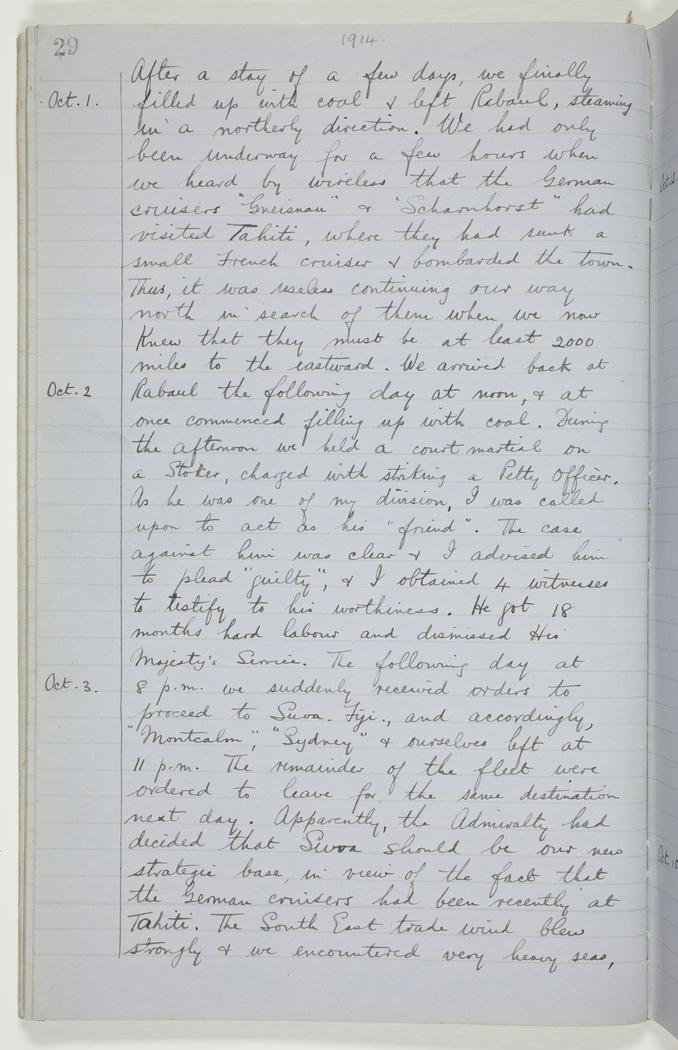 29
1914.
After a stay of a few days, we finally
Oct. 1. filled up with coal & left Rabaul, steaming
in a northerly direction. We had only
been underway for a few hours when
we heard by wireless that the German
cruisers "Gneisnau" & "Scharnhorst" had
visited Tahiti, where they had sunk a
small French cruiser & bombarded the town.
Thus, it was useless continuing our way
north in search of them when we now
knew that they must be at least 2000
miles to the eastward. We arrived back at
Oct. 2 Rabaul the following day at noon, & at
once commenced filling up with coal. During
the afternoon we held a court martial on
a Stoker, charged with striking a Petty Officer.
As he was one of my division, I was called
upon to act as his "friend". The case
against him was clear & I advised him
to plead "guilty", & I obtained 4 witnesses
to testify to his worthiness. He got 18
months hard labour and dismissed His
Majesty's Service. The following day at
Oct. 3. 8 p.m. we suddenly received orders to
proceed to Suva. Fiji., and accordingly,
"Montcalm", "Sydney" & ourselves left at
11 p.m. The remainder of the fleet were
ordered to leave for the same destination
next day. Apparently, the Admiralty had
decided that Suva should be our new
strategic base, in view of the fact that
the German cruisers had been recently at
Tahiti. The South East trade wind blew
strongly & we encountered very heavy seas,
Oct. 15